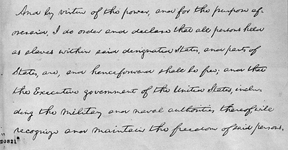 And by virtue of the power, and for the purpose af-
oresaid, I do order and declare that all persons held
as slaves within said designated States, and parts of
States, are, and henceforward shall be free; and that
the Executive government of the United States, inclu-
ding the military and naval authorities thereof, will
recognize and maintain the freedom of said persons.